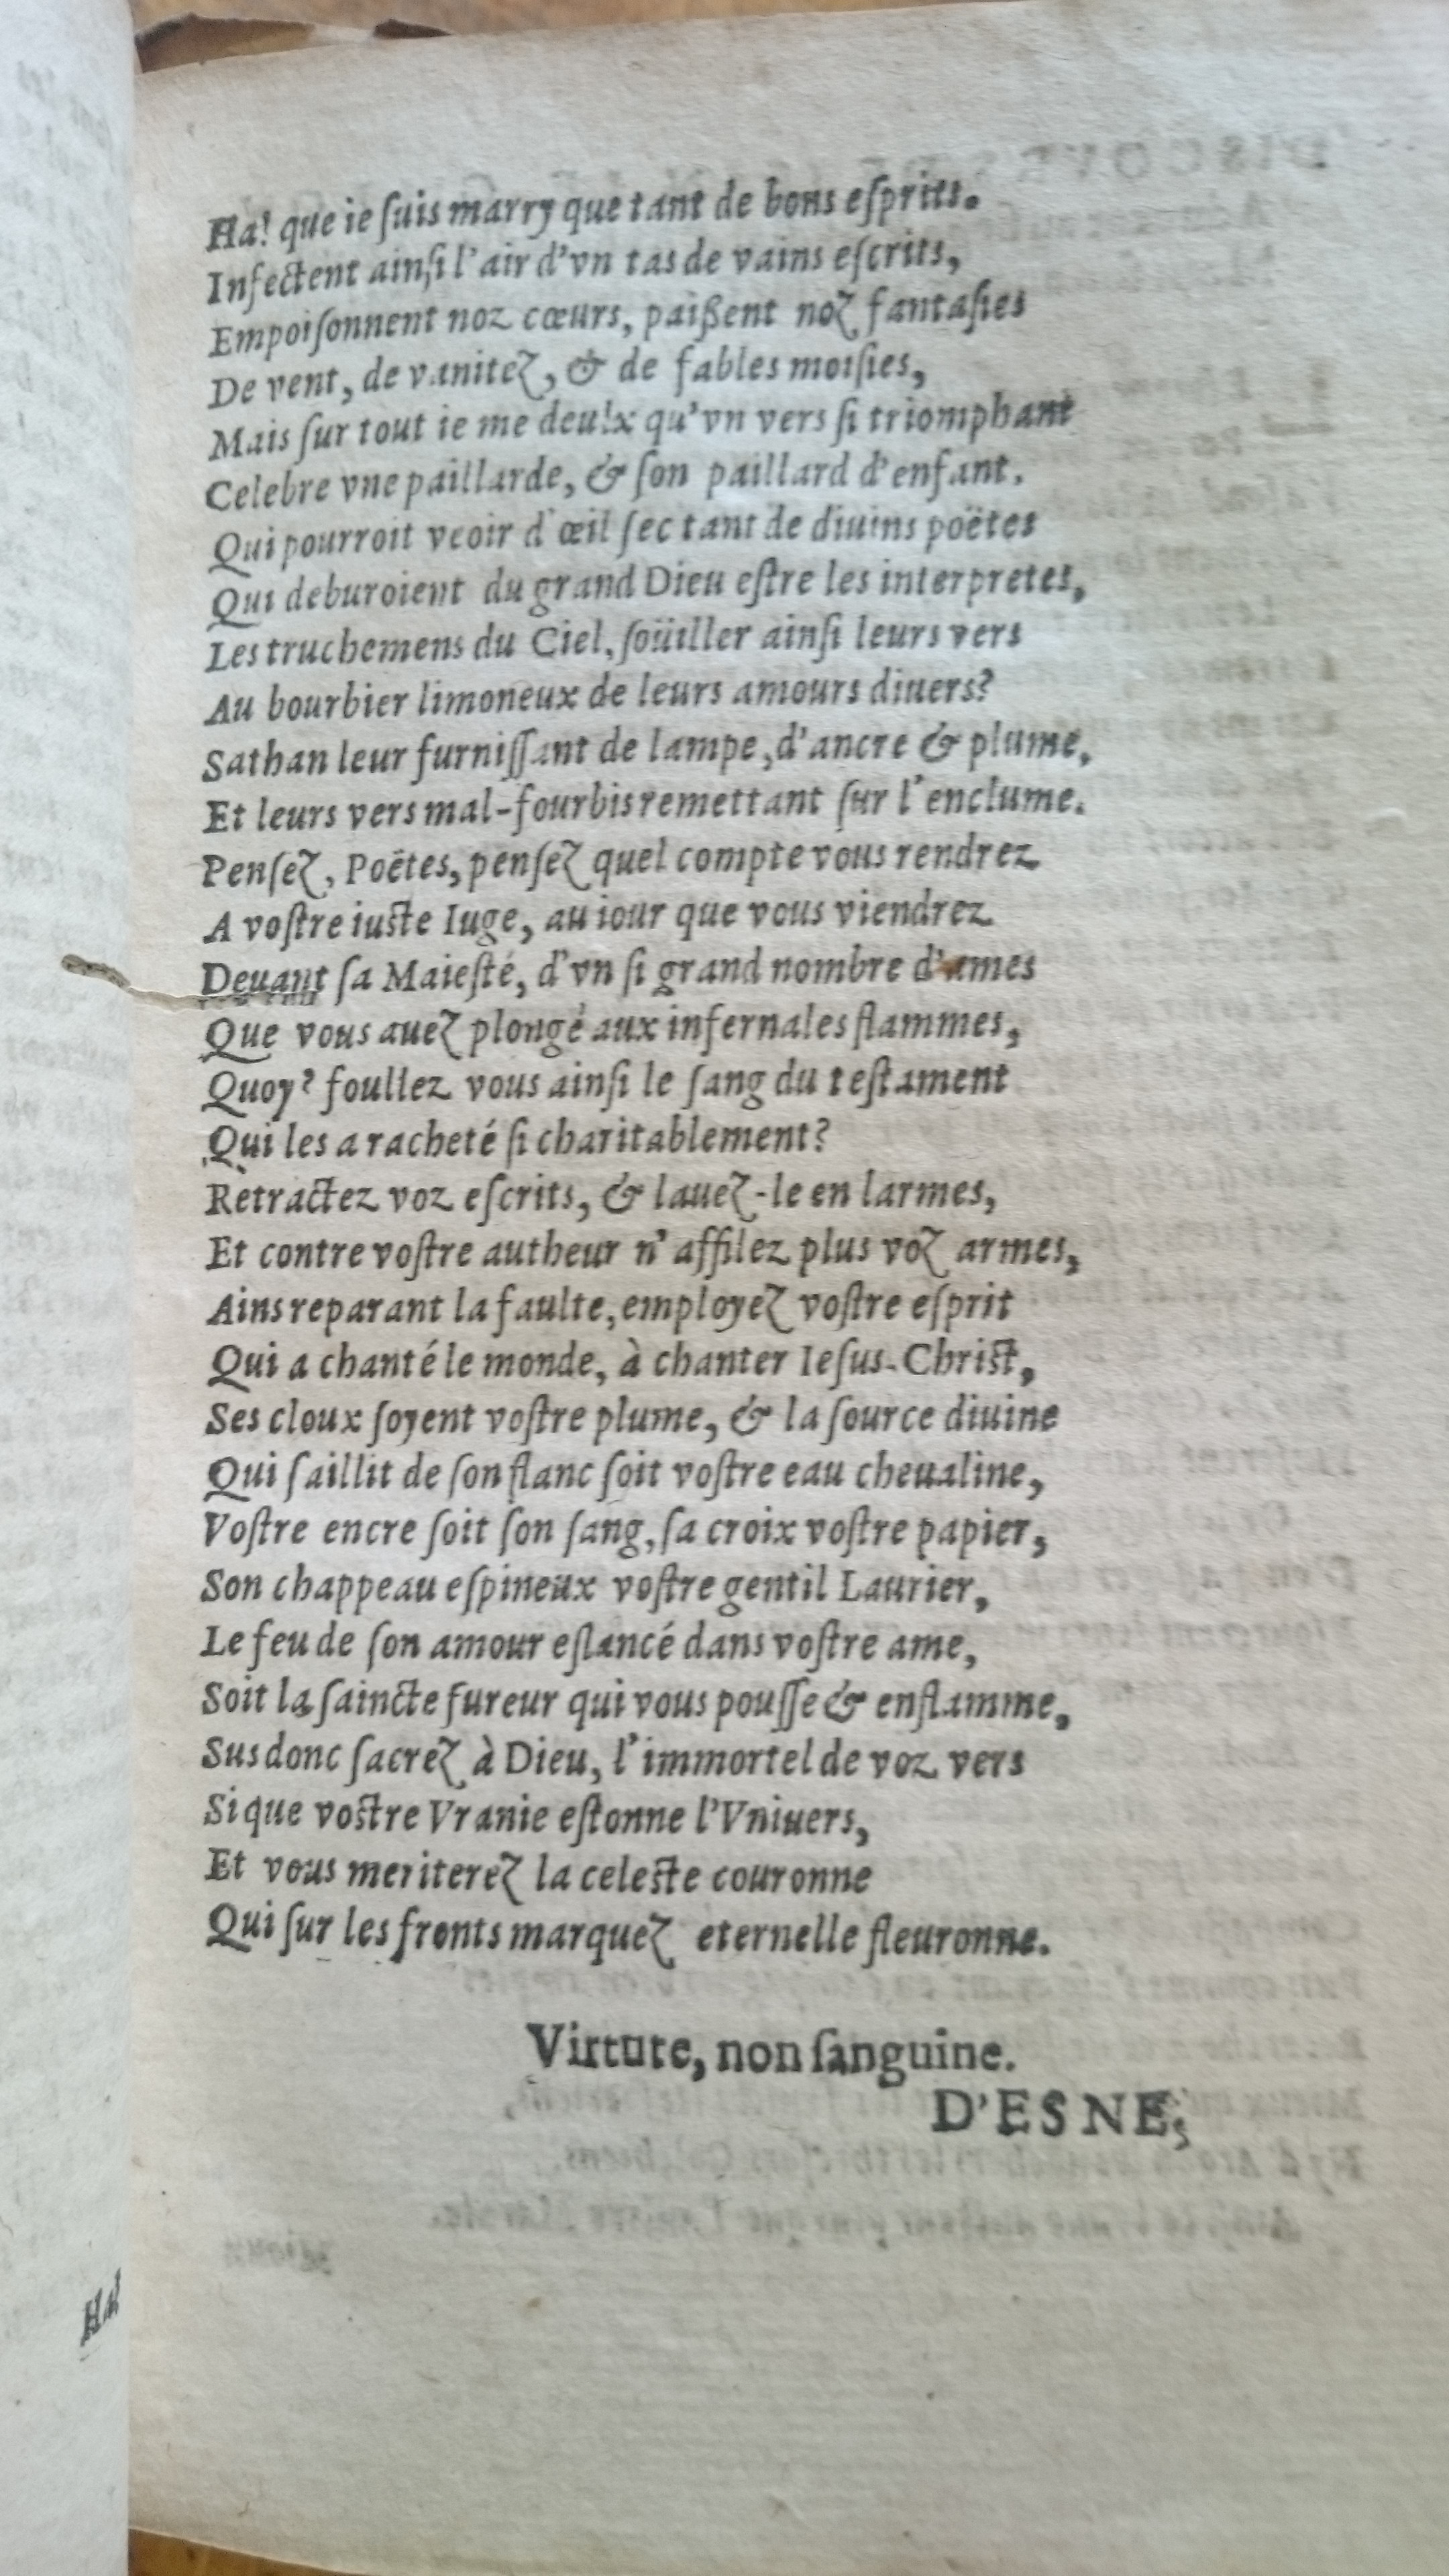 Ha! que ie ſuis marry que tant de bons eſprits.
Infectent ainſi l'air d'vn tas de vains eſcrits,
Empoiſonnent noz cœurs, paißent noz fantaſies
De vent, de vanitez, & de fables moiſies,
Mais ſur tout ie me deulx qu'vn vers ſi triomphant
Celebre vne paillarde, & ſon paillard d'enfant.
Qui pourroit veoir d'œil ſec tant de diuins poëtes
Qui deburoient du grand Dieu eſtre les interpretes,
Les truchemens du Ciel, ſoüiller ainſi leurs vers
Au bourbier limoneux de leurs amours diuers?
Sathan leur furniſſant de lampe, d'ancre & plume,
Et leurs vers mal-fourbis remettant ſur l'enclume.
Penſez, Poëtes, penſez quel compte vous rendrez
A voſtre iuſte Iuge, au iour que vous viendrez
Deuant ſa Maieſté, d'vn ſi grand nombre d'ames
Que vous auez plongé aux infernales flammes,
Quoy? foullez vous ainſi le ſang du teſtament
Qui les a racheté ſi charitablement?
Retractez voz eſcrits, & lauez-le en larmes,
Et contre voſtre autheur n'affilez plus voz armes,
Ains reparant la faulte, employez voſtre eſprit
Qui a chanté le monde, à chanter Ieſus-Chriſt,
Ses cloux ſoyent voſtre plume, & la ſource diuine
Qui ſaillit de ſon flanc ſoit voſtre eau cheualine,
Voſtre encre ſoit ſon ſang, ſa croix voſtre papier,
Son chappeau eſpineux voſtre gentil Laurier,
Le feu de ſon amour eſlancé dans voſtre ame,
Soit la ſaincte fureur qui vous pouſſe & enflamme,
Sus donc ſacrez à Dieu, l'immortel de voz vers
Si que voſtre Vranie eſtonne l'Vniuers,
Et vous meriterez la celeſte couronne
Qui ſur les fronts marquez eternelle fleuronne.
Virtute, non ſanguine.
D'ESNE,
Ha!